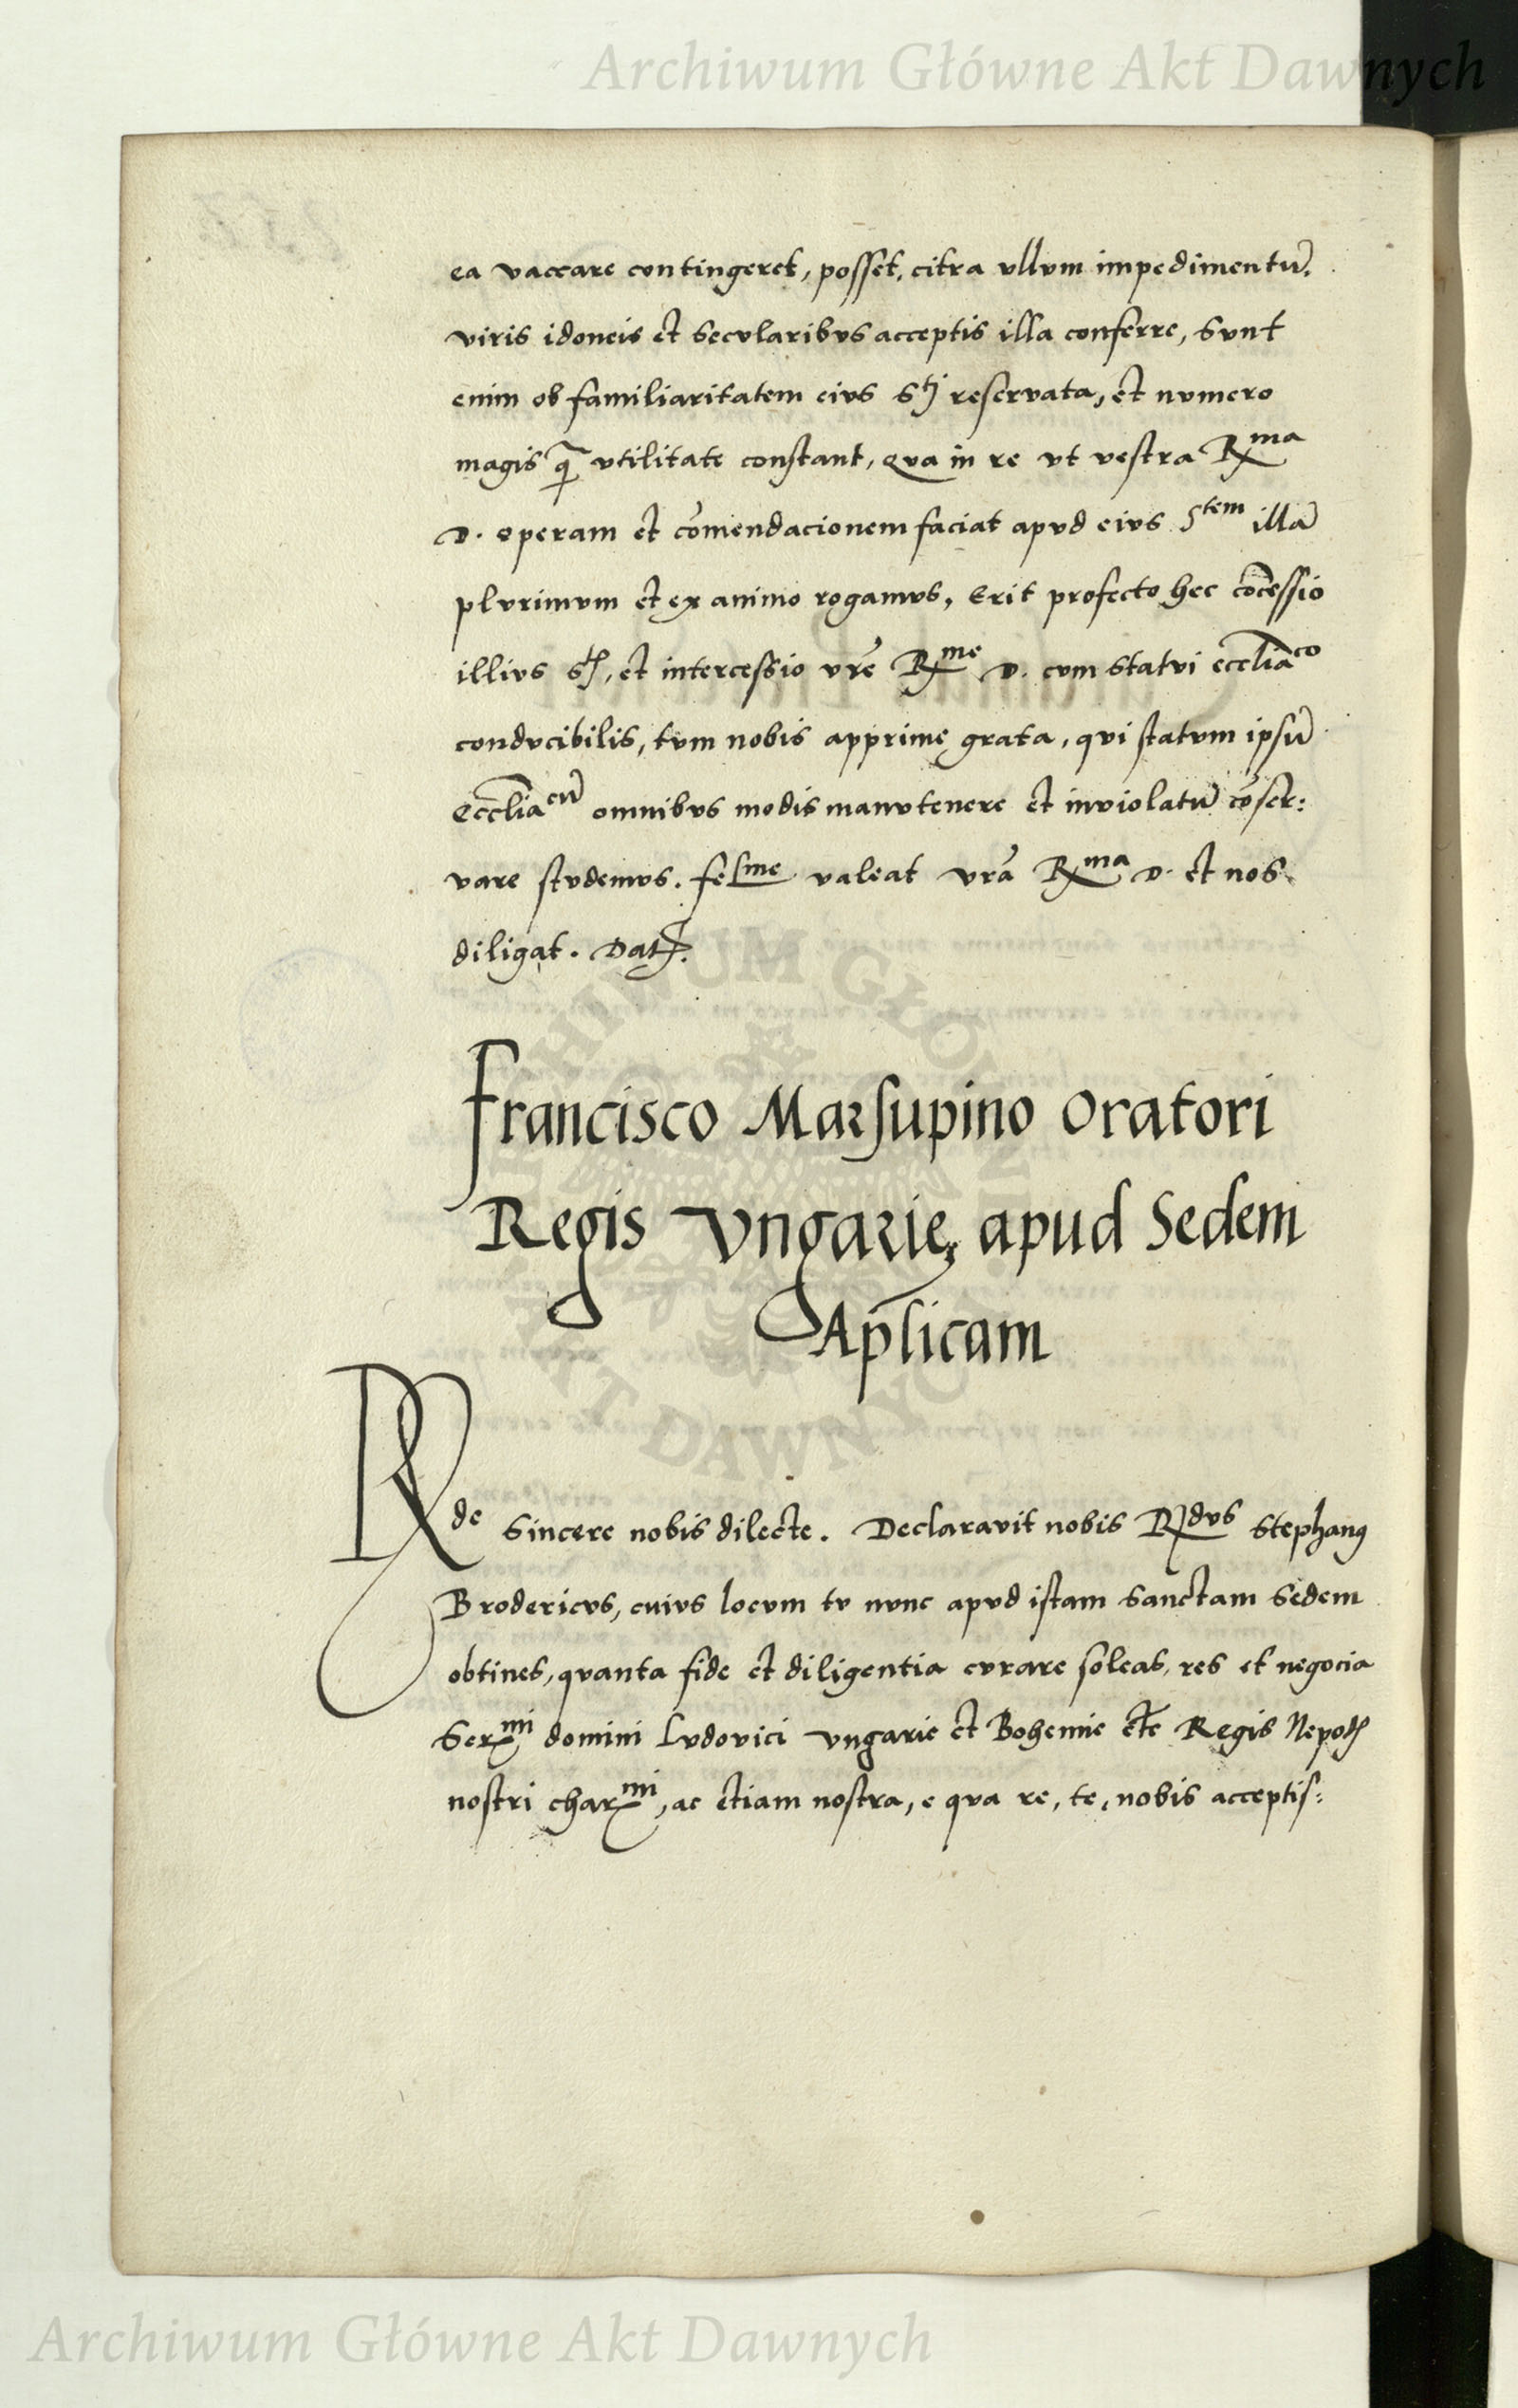 Archiwum Główne Akt Dawnych
ea vaccare contingeret, posset, citra vllvm impedimentū,
viris idoneis et secvlaribvs acceptis illa conferre, svnt
enim ob familiaritatem eivs Stj reservata, et nvmero
magis q̄ vtilitate constant, qva in re vt vestra Rma
D. operam et cōmendacionem faciat apvd eivs Stem illā
plvrimvm et ex animo rogamvs, Erit profecto hec cōcessio
illivs St, et intercessio vrē Rme D. cvm statvi eccliāco
condvcibilis, tvm nobis apprime grata, qvi statvm ipsū
Eccliācū omnibvs modis manvtenere et inviolatū cōser:
vare stvdemvs. felme valeat vrā Rma D. et nos
diligat. Dat.
Francisco Marsupino Oratori
Regis Vngarie, apud Sedem
Aplicam
ARCHIWUM GŁÓWNE AKT DAWNYCH
Rde sincere nobis dilecte. Declaravit nobis Rdvs Stephanꝰ
Brodericvs, cuivs locvm tv nvnc apvd istam sanctam Sedem
obtines, qvanta fide et diligentia cvrare soleas, res et negocia
Sermi domini Lvdovici vngarie et Bohemie etc Regis Nepotis
nostri charmi, ac etiam nostra, e qva re, te, nobis acceptis:
Archiwum Główne Akt Dawnych